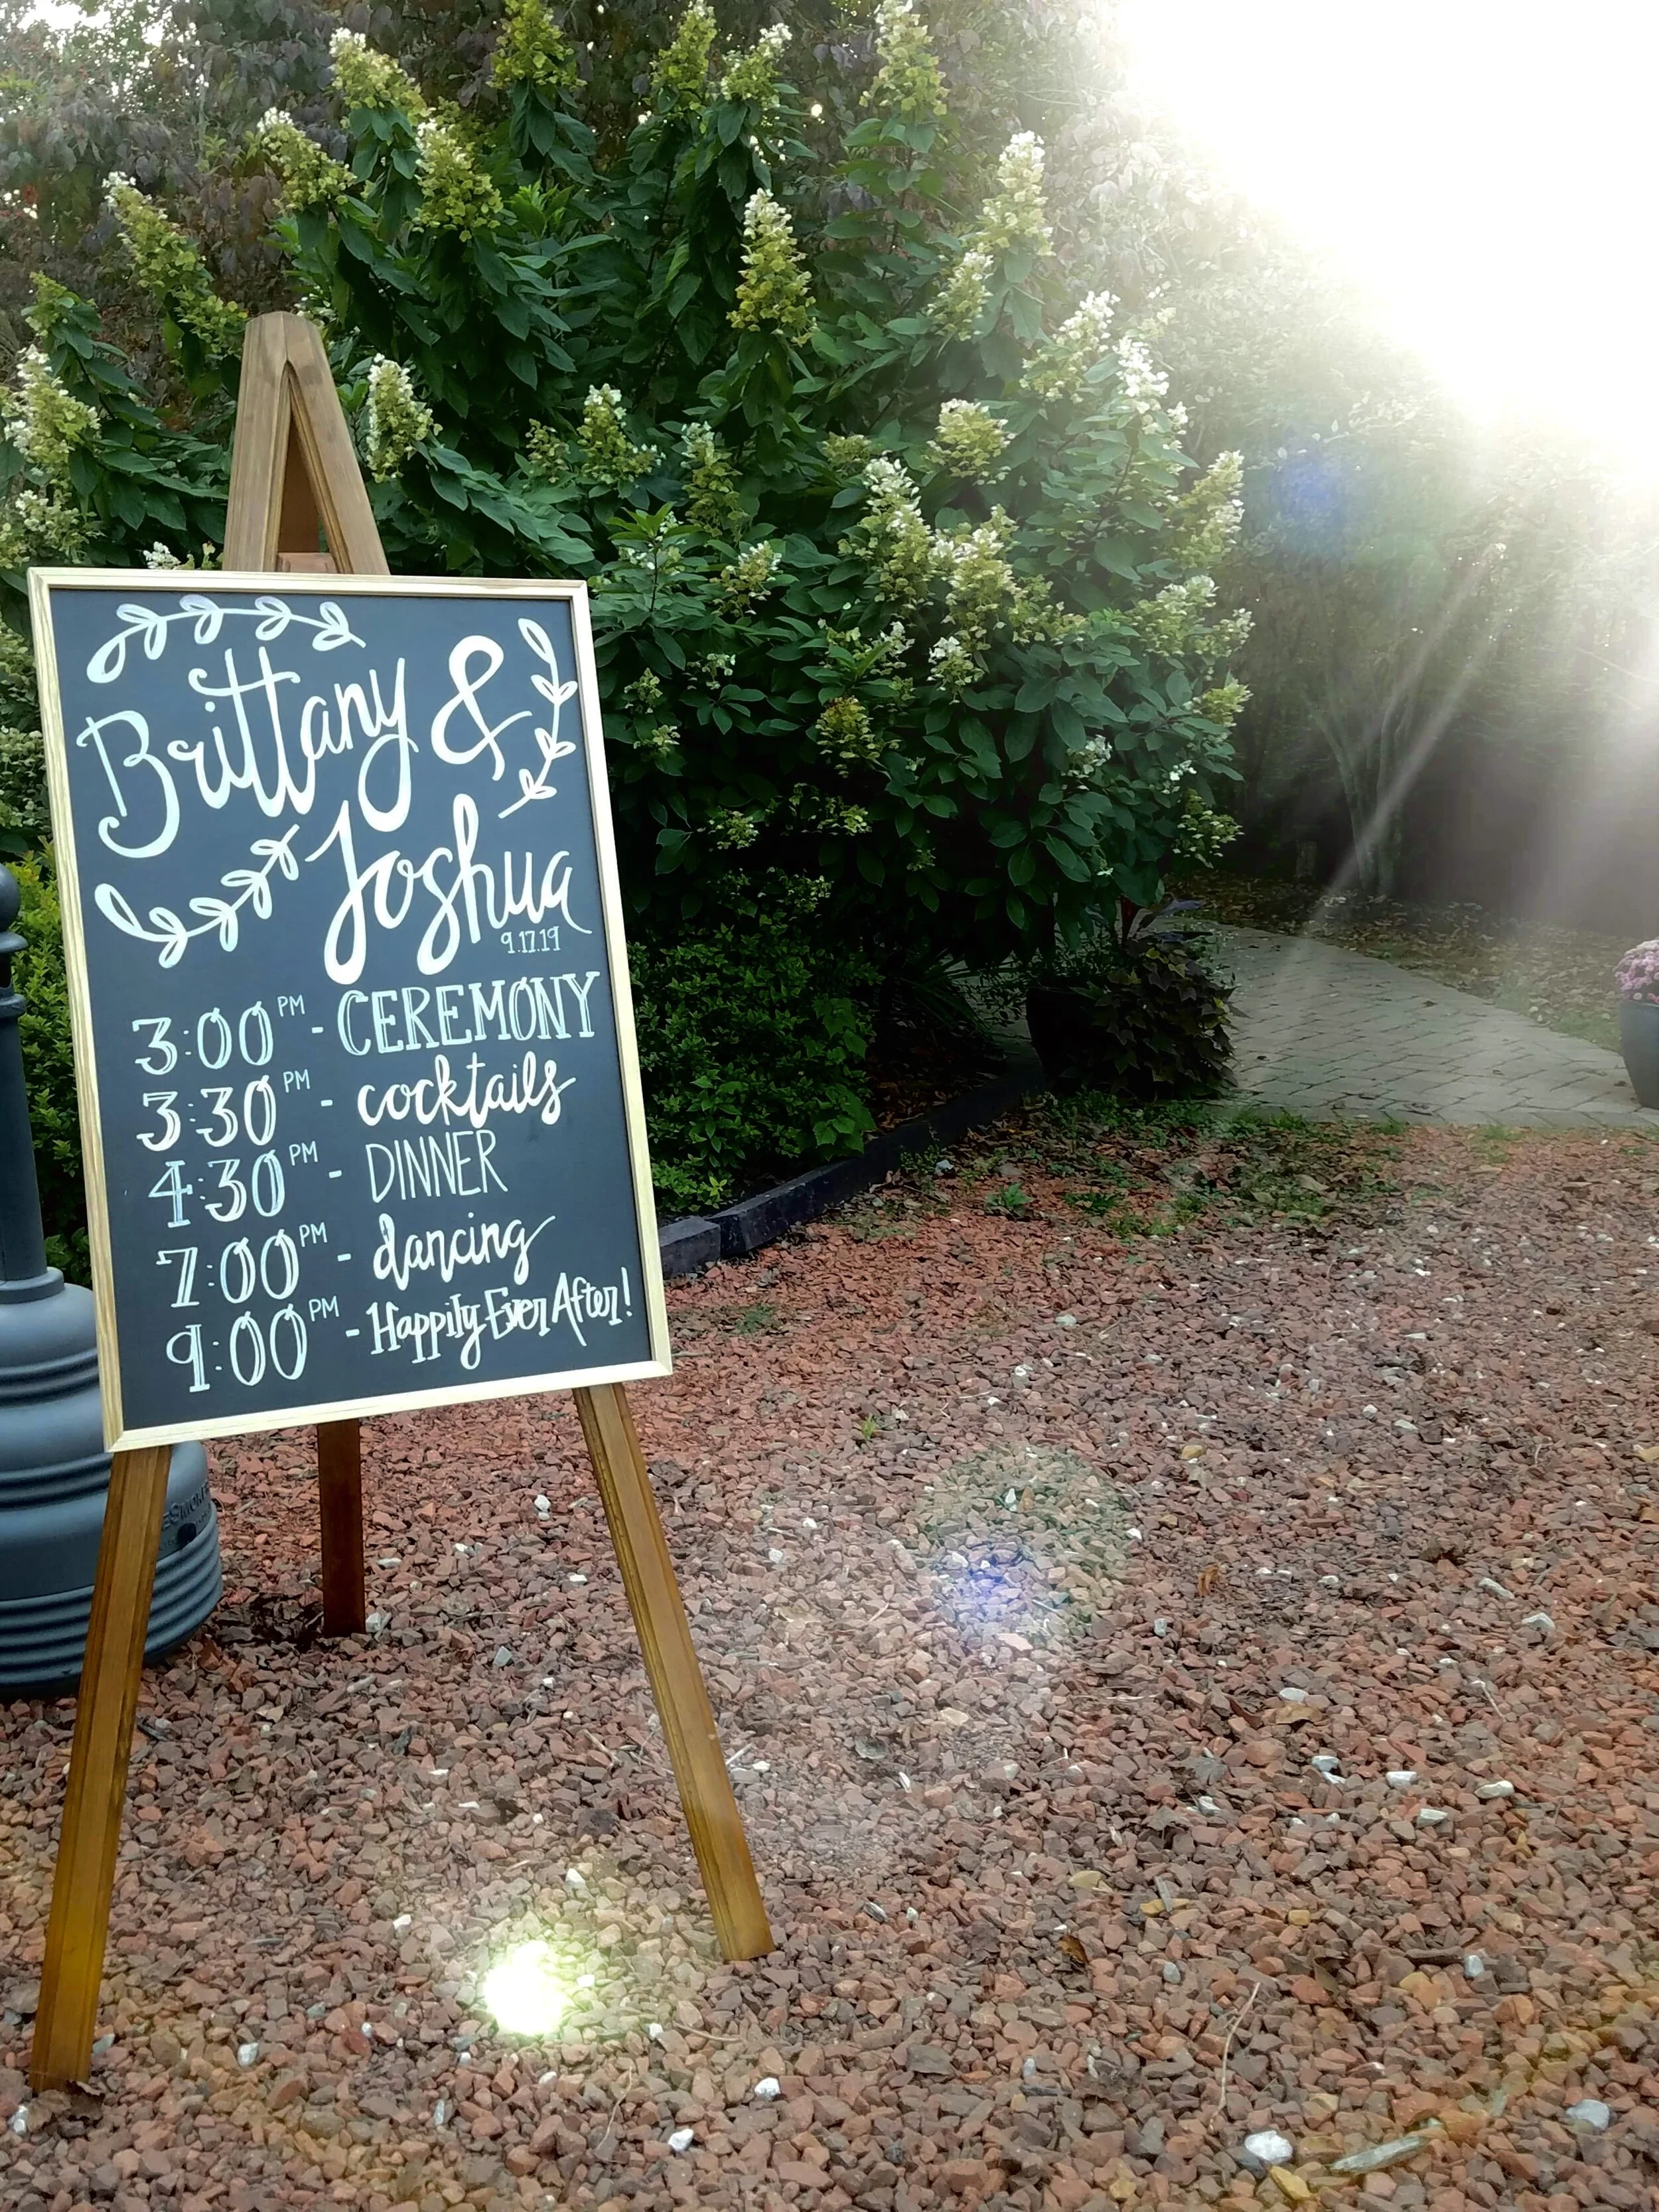 Brittany &
Joshua
9.17.19
3:00 PM - CEREMONY
3:30 PM - cocktails
4:30 PM - DINNER
7:00 PM - dancing
9:00 PM - Happily Ever After!